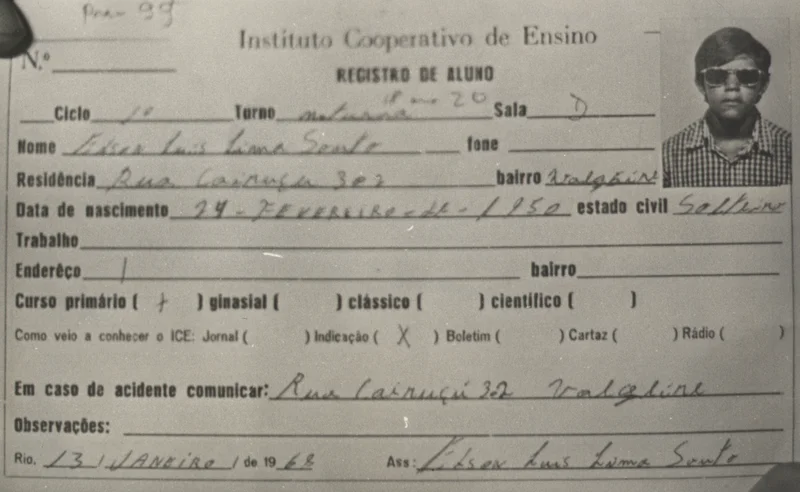 99
Instituto Cooperativo de Ensino
N.º
REGISTRO DE ALUNO
Ciclo 1º Turno noturna 18 ano 20 Sala D
Nome Edson Luis Lima Souto fone
Residência Rua Cairuçu 302 bairro Valqueire
Data de nascimento 24 - FEVEREIRO - DE - 1950 estado civil Solteiro
Trabalho
Enderêço bairro
Curso primário ( + ) ginasial ( ) clássico ( ) científico ( )
Como veio a conhecer o ICE: Jornal ( ) Indicação ( X ) Boletim ( ) Cartaz ( ) Rádio ( )
Em caso de acidente comunicar: Rua Cairuçú 32 Valqueire
Observações:
Rio, 13 / JANEIRO / de 1968 Ass: Edson Luis Lima Souto